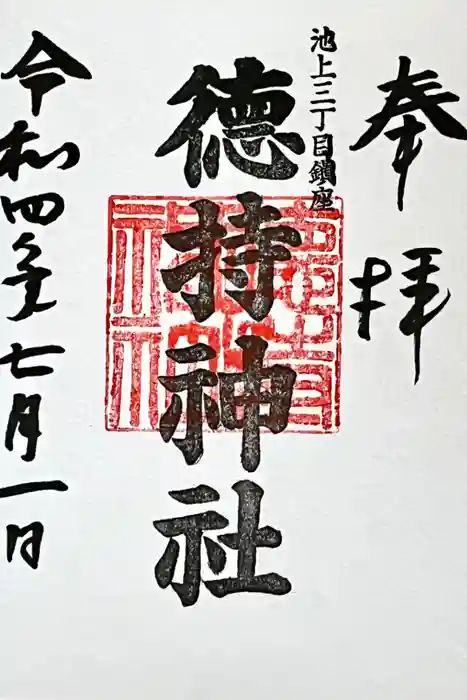 奉拝
池上三丁目鎮座
徳持神社
令和四年七月一日